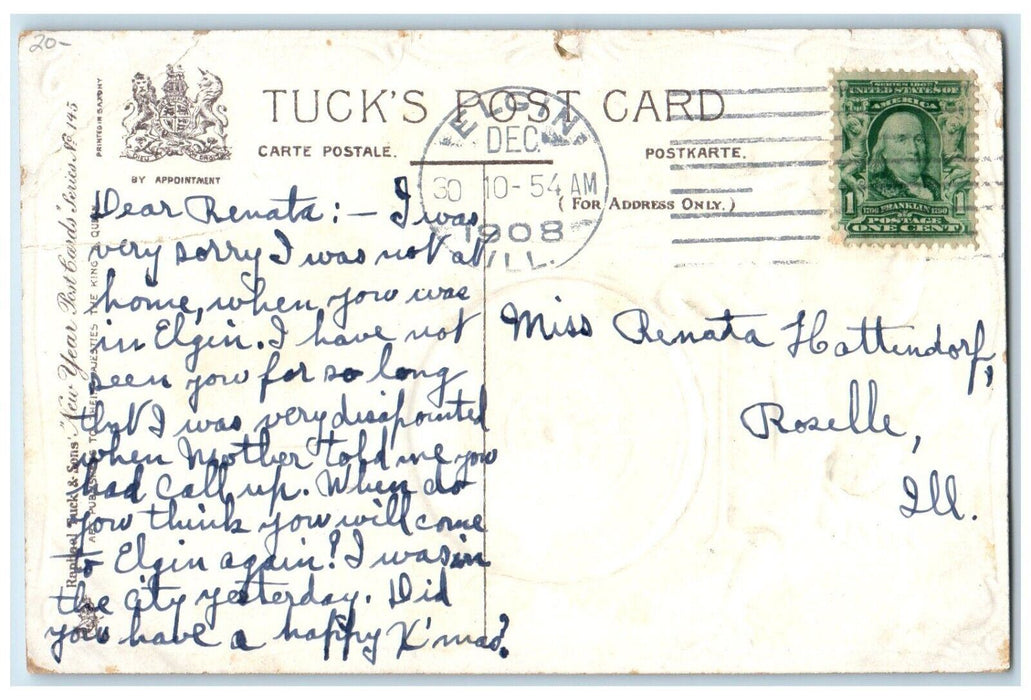 20-
TUCK'S POST CARD
CARTE POSTALE.
POSTKARTE.
( FOR ADDRESS ONLY. )
BY APPOINTMENT
PRINTED IN SAXONY
Raphael Tuck & Sons' "New Year Post Cards" Series No. 145
ART PUBLISHERS TO THEIR MAJESTIES THE KING & QUEEN
ELGIN
DEC.
30 10-54 AM
1908
ILL.
UNITED STATES OF
AMERICA
1 1
FRANKLIN
POSTAGE
ONE CENT
Dear Renata:- I was
very sorry I was not at
home, when you was
in Elgin. I have not
seen you for so long
that I was very disapointed
when Mother told me you
had call up. When do
you think you will come
to Elgin again? I was in
the city yesterday. Did
you have a happy X'mas?
Miss Renata Hattendorf,
Roselle,
Ill.